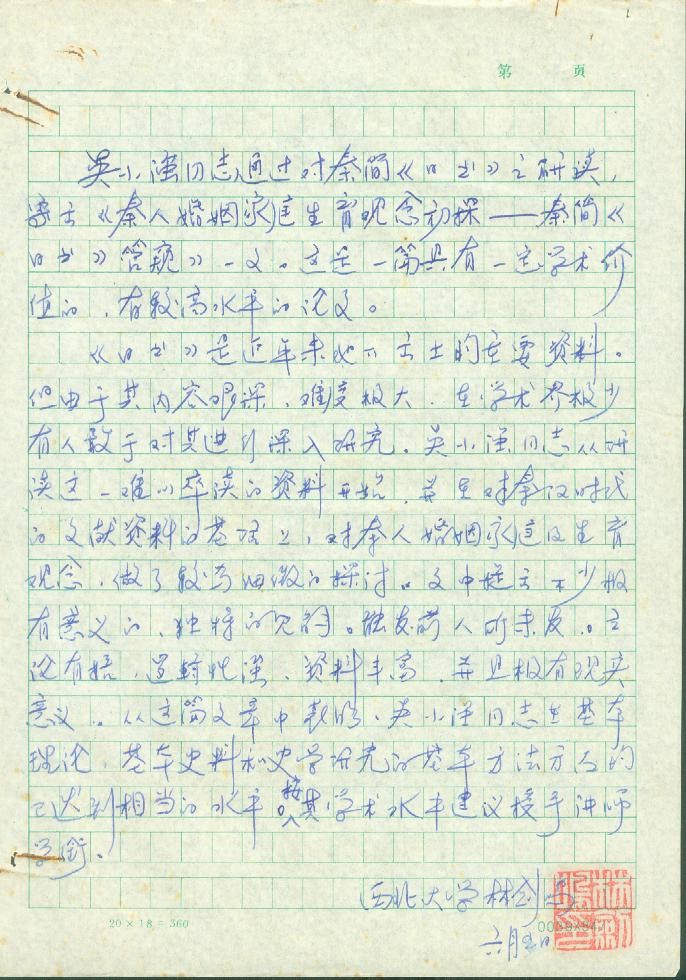 第 页
吴小强同志通过对秦简《日书》之研读,
写出《秦人婚姻家庭生育观念初探——秦简《
日书》管窥》一文。这是一篇具有一定学术价
值的、有较高水平的论文。
《日书》是近年来地下出土的重要资料。
但由于其内容艰深、难度极大,在学术界极少
有人敢于对其进行深入研究。吴小强同志从研
读这一难以卒读的资料开始,并在对秦汉时代
的文献资料的基础上,对秦人婚姻家庭及生育
观念,做了较为细微的探讨。文中提出不少极
有意义的、独特的见解。能发前人所未发。立
论有据,逻辑性强,资料丰富,并且极有现实
意义。从这篇文章中表明,吴小强同志在基本
理论、基本史料和史学研究的基本方法方面均
已达到相当的水平。按其学术水平建议授予讲师
学衔。
西北大学林剑鸣
六月 日
20×18=360
林剑鸣